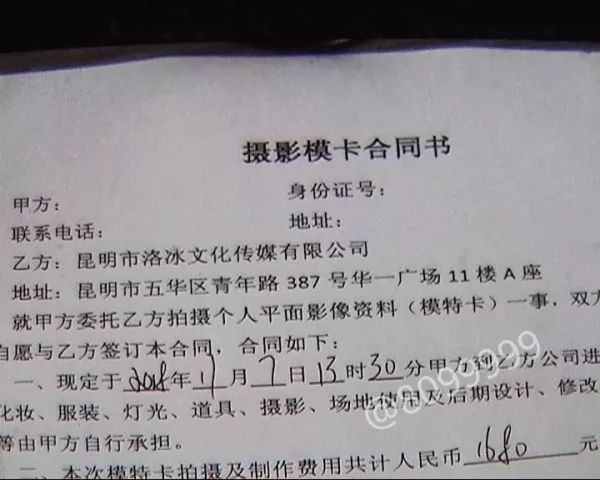 摄影模卡合同书
甲方: 身份证号:
联系电话: 地址:
乙方: 昆明市洛冰文化传媒有限公司
地址: 昆明市五华区青年路 387 号华一广场 11 楼 A 座
就甲方委托乙方拍摄个人平面影像资料（模特卡）一事，双方
自愿与乙方签订本合同，合同如下:
一、现定于 2018 年 11 月 7 日 13 时 30 分甲方到乙方公司进
化妆、服装、灯光、道具、摄影、场地使用及后期设计、修改
等由甲方自行承担。
二、本次模特卡拍摄及制作费用共计人民币 1680 元
@8099999